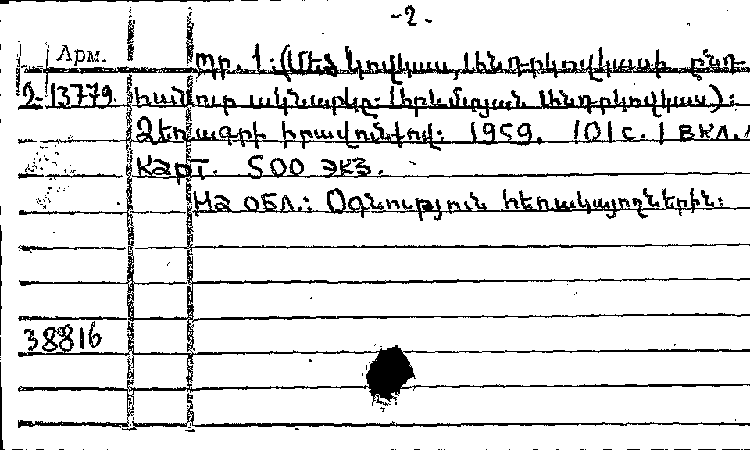 -2.
Арм. Պր. 1: (Մեծ Կովկաս, Անդրկովկասի ընդ-
2-13779 հանուր ակնարկը: Արևմտյան Անդրկովկաս):
Ձեռագրի իրավունքով: 1959. 101 с. 1 вкл. л.
карт. 500 экз.
На обл.: Օգնություն հեռակայողներին:
38816